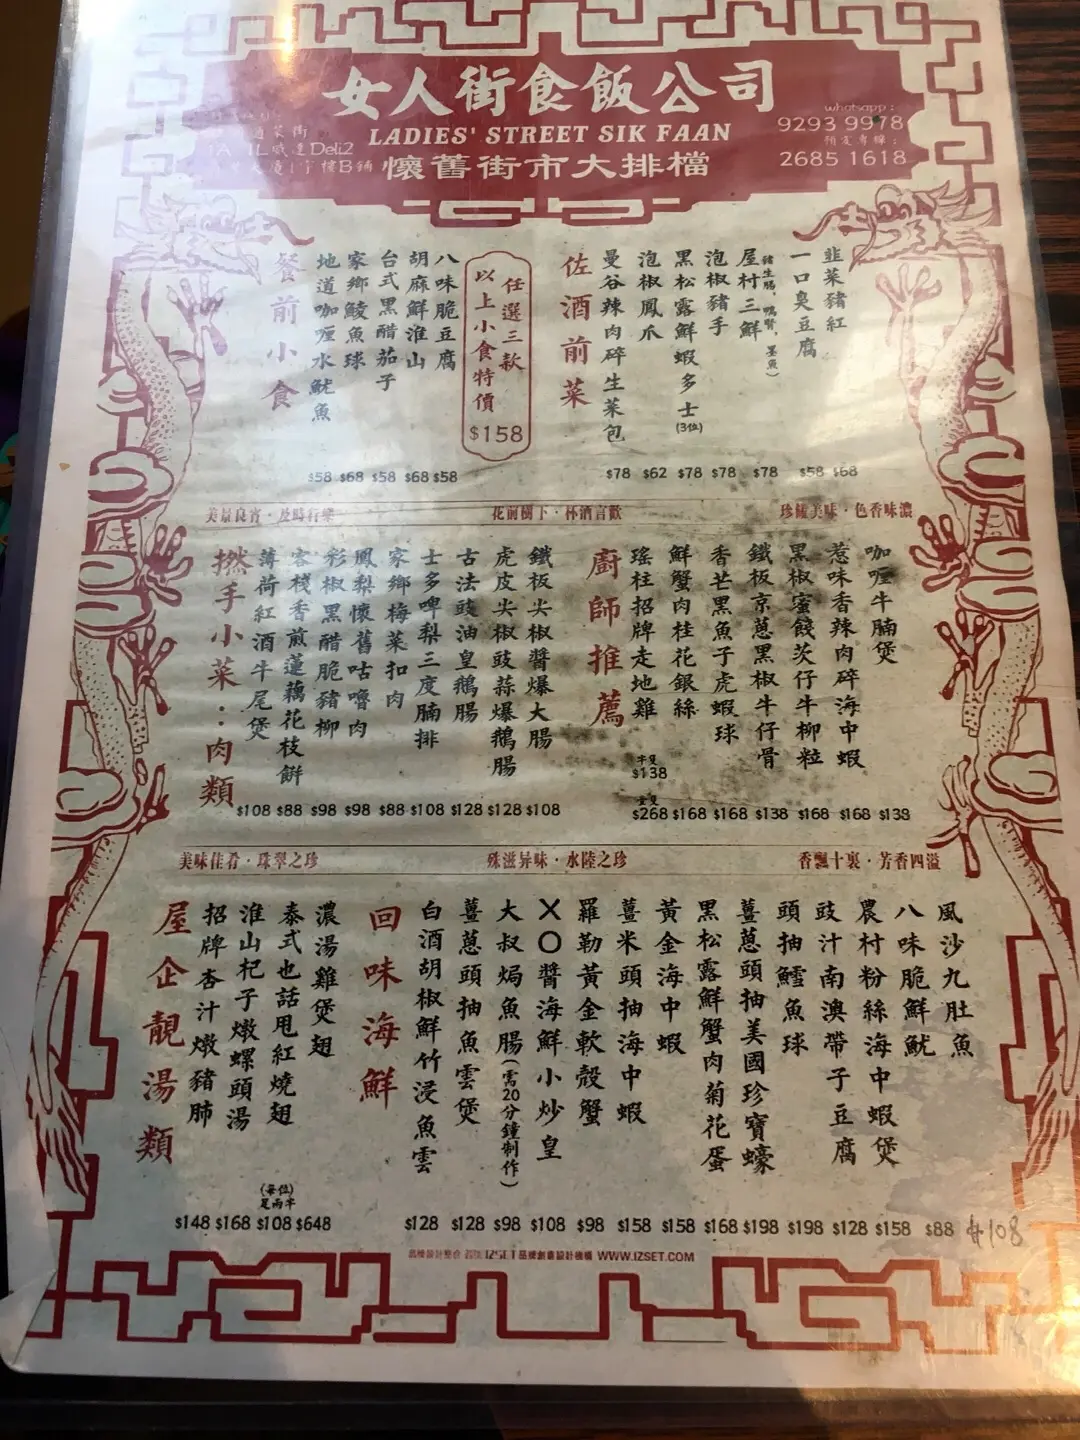 女人街食飯公司
LADIES' STREET SIK FAAN
懷舊街市大排檔
whatsapp :
9293 9978
2685 1618
菜街
威達Deli2
B鋪
餐前小食
地道咖喱水魷魚
家鄉鯪魚球
台式黑醋茄子
胡麻鮮淮山
八味脆豆腐
$58 $68 $58 $68 $58
任選三款
以上小食特價
$158
佐酒前菜
曼谷辣肉碎生菜包
泡椒鳳爪
黑松露鮮蝦多士(3位)
泡椒豬手
屋村三鮮(豬生腸,鴨腎,墨魚)
一口臭豆腐
韭菜豬紅
$78 $62 $78 $78 $78 $58 $68
美景良宵·及時行樂
花前樹下·杯酒言歡
珍饈美味·色香味濃
撚手小菜:肉類
薄荷紅酒牛尾煲
客棧香煎蓮藕花枝餅
彩椒黑醋脆豬柳
鳳梨懷舊咕嚕肉
家鄉梅菜扣肉
士多啤梨三度腩排
古法豉油皇鵝腸
虎皮尖椒豉蒜爆鵝腸
鐵板尖椒醬爆大腸
$108 $88 $98 $98 $88 $108 $128 $128 $108
廚師推薦
瑤柱招牌走地雞
鮮蟹肉桂花銀絲
香芒黑魚子虎蝦球
鐵板京蔥黑椒牛仔骨
黑椒蜜餞茨仔牛柳粒
惹味香辣肉碎海中蝦
咖喱牛腩煲
半隻
$138
全隻
$268 $168 $168 $138 $168 $168 $138
美味佳肴·珠翠之珍
殊滋异味·水陸之珍
香飄十裏·芳香四溢
屋企靚湯類
招牌杏汁燉豬肺
淮山杞子燉螺頭湯
泰式也話甩紅燒翅
濃湯雞煲翅
(每位)
足兩半
$148 $168 $108 $648
回味海鮮
白酒胡椒鮮竹浸魚雲
薑蔥頭抽魚雲煲
大叔焗魚腸(需20分鐘制作)
XO醬海鮮小炒皇
羅勒黃金軟殼蟹
薑米頭抽海中蝦
黃金海中蝦
黑松露鮮蟹肉菊花蛋
薑蔥頭抽美國珍寶蠔
頭抽鱈魚球
豉汁南澳帶子豆腐
農村粉絲海中蝦煲
八味脆鮮魷
風沙九肚魚
$128 $128 $98 $108 $98 $158 $158 $168 $198 $198 $128 $158 $88 $108
IZSET品牌創意設計機構 WWW.IZSET.COM